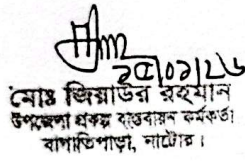 ১৫/০১/২৬
মোঃ জিয়াউর রহমান
উপজেলা প্রকল্প বাস্তবায়ন কর্মকর্তা
বাগাতিপাড়া, নাটোর।